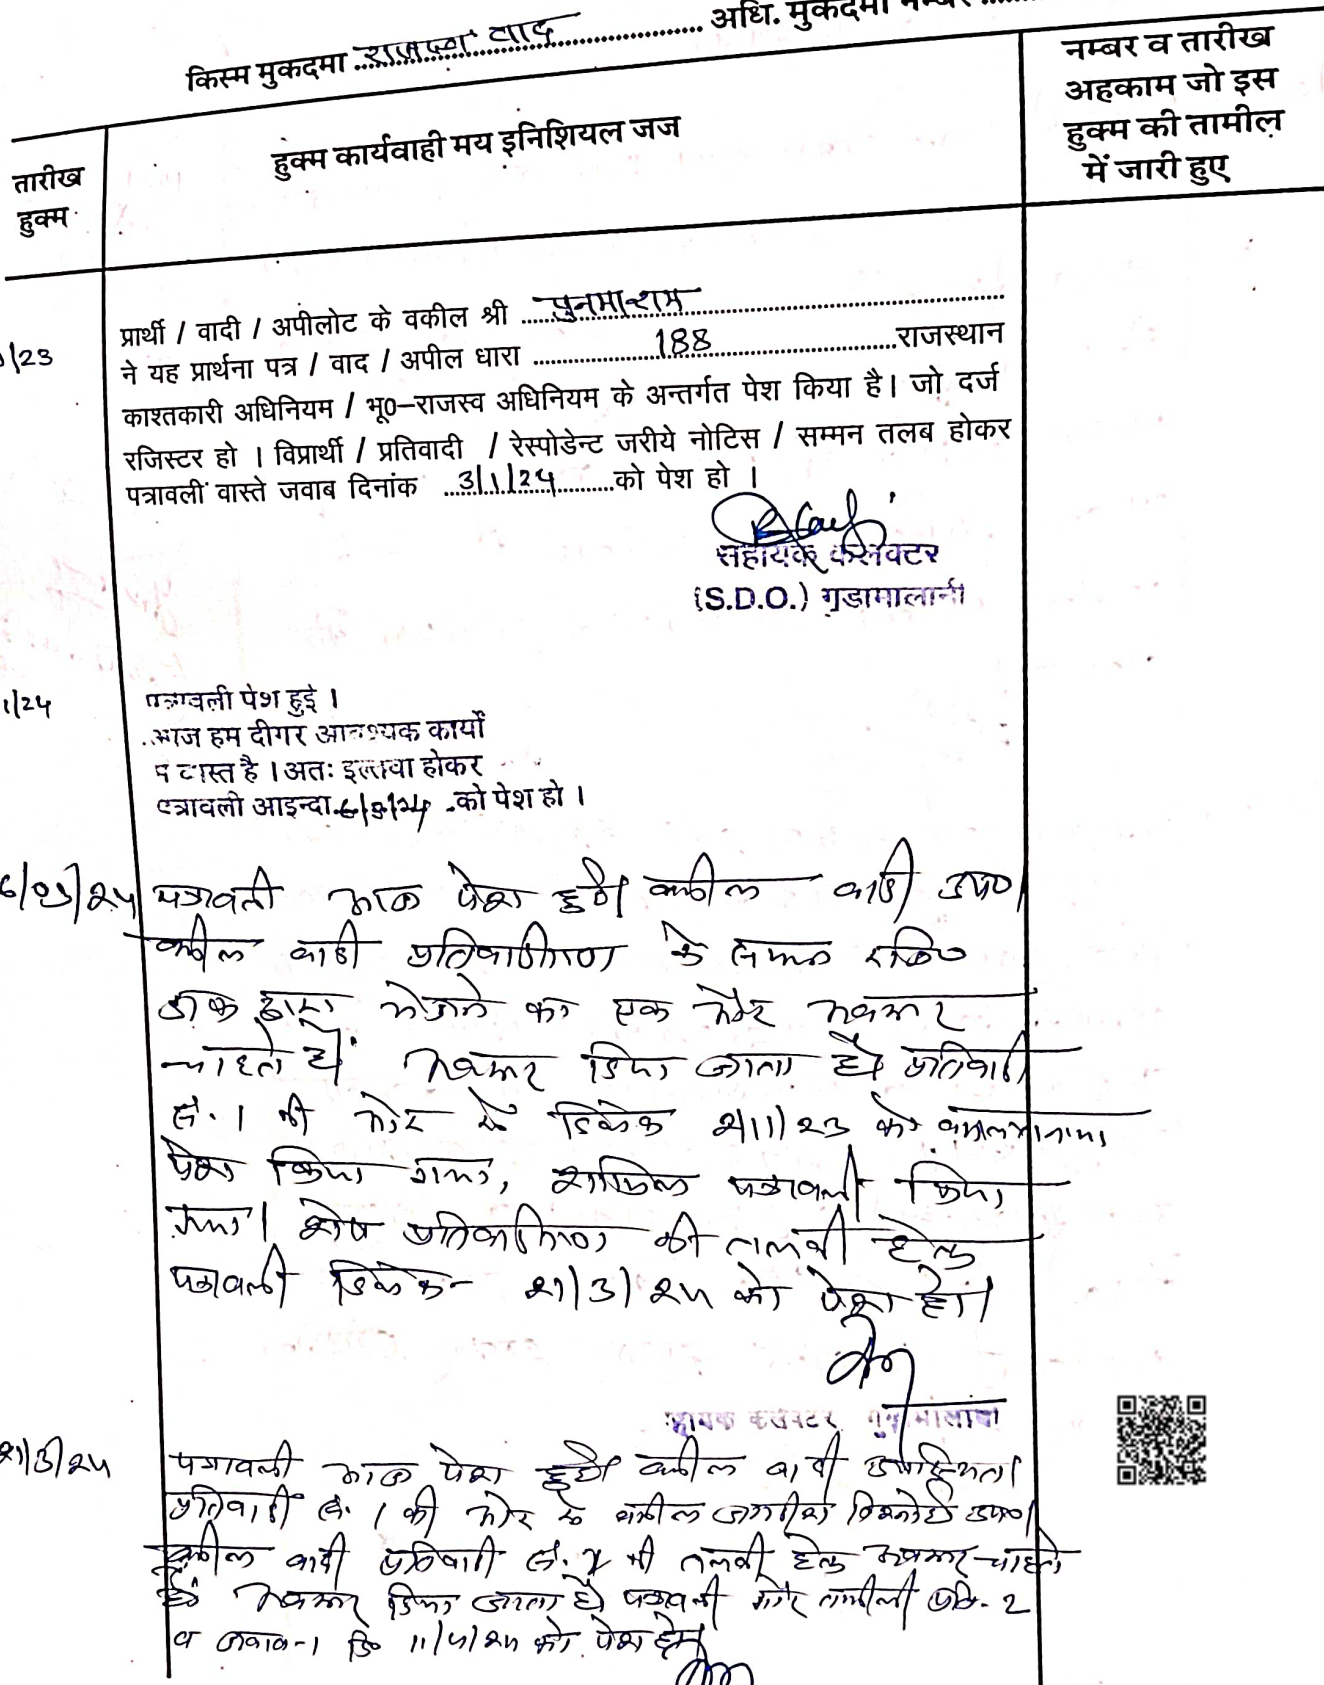 किस्म मुकदमा राजस्व वाद अधि. मुकदमा नम्बर
तारीख हुक्म
हुक्म कार्यवाही मय इनिशियल जज
नम्बर व तारीख
अहकाम जो इस
हुक्म की तामील
में जारी हुए
/23
प्रार्थी / वादी / अपीलोट के वकील श्री पुनमाराम
ने यह प्रार्थना पत्र / वाद / अपील धारा 188 राजस्थान
काश्तकारी अधिनियम / भू०-राजस्व अधिनियम के अन्तर्गत पेश किया है। जो दर्ज
रजिस्टर हो । विप्रार्थी / प्रतिवादी / रेस्पोडेन्ट जरीये नोटिस / सम्मन तलब होकर
पत्रावली वास्ते जवाब दिनांक 3/1/24 को पेश हो ।
सहायक कलेक्टर
(S.D.O.) गुडामालानी
1/24
पत्रावली पेश हुई ।
आज हम दीगर आवश्यक कार्यों
में व्यस्त है । अतः इल्तवा होकर
पत्रावली आइन्दा 6/3/24 को पेश हो ।
6/03/24 पत्रावली आज पेश हुई। वकील वादी उप०।
वकील वादी प्रतिवादीगण के सम्मन रजि०
डाक द्वारा भेजने का एक और अवसर
चाहते हैं। अवसर दिया जाता है। प्रतिवादी
सं. 1 की ओर से दिनांक 2/11/23 को वकालतनामा
पेश किया गया, शामिल पत्रावली किया
गया। शेष प्रतिवादीगण की तलबी हेतु
पत्रावली दिनांक 21/3/24 को पेश हो।
सहायक कलेक्टर, गुडामालानी
21/3/24 पत्रावली आज पेश हुई। वकील वादी उपस्थित।
प्रतिवादी सं. 1 की ओर से वकील जगदीश विश्नोई उप०।
वकील वादी प्रतिवादी सं. 2 की तलबी हेतु अवसर चाहते
है। अवसर दिया जाता है। पत्रावली तामीली प्रति. 2
व जवाब-1 दि० 11/4/24 को पेश हो।